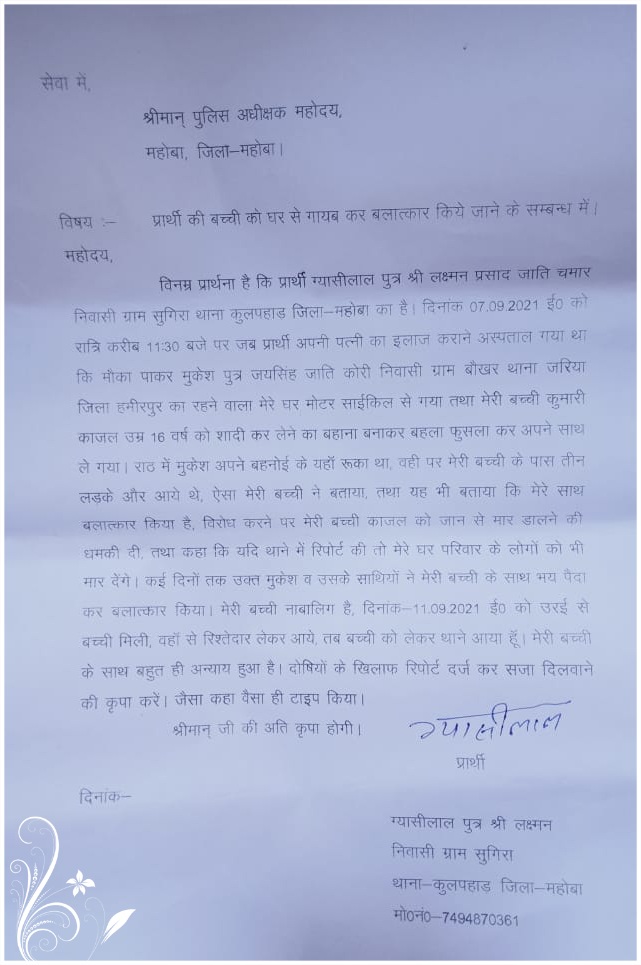 सेवा में,
श्रीमान् पुलिस अधीक्षक महोदय,
महोबा, जिला–महोबा।
विषय :– प्रार्थी की बच्ची को घर से गायब कर बलात्कार किये जाने के सम्बन्ध में।
महोदय,
विनम्र प्रार्थना है कि प्रार्थी ग्यासीलाल पुत्र श्री लक्ष्मन प्रसाद जाति चमार
निवासी ग्राम सुगिरा थाना कुलपहाड़ जिला–महोबा का है। दिनांक 07.09.2021 ई0 को
रात्रि करीब 11:30 बजे पर जब प्रार्थी अपनी पत्नी का इलाज कराने अस्पताल गया था
कि मौका पाकर मुकेश पुत्र जयसिंह जाति कोरी निवासी ग्राम बौखर थाना जरिया
जिला हमीरपुर का रहने वाला मेरे घर मोटर साईकिल से गया तथा मेरी बच्ची कुमारी
काजल उम्र 16 वर्ष को शादी कर लेने का बहाना बनाकर बहला फुसला कर अपने साथ
ले गया। राठ में मुकेश अपने बहनोई के यहाँ रूका था, वही पर मेरी बच्ची के पास तीन
लड़के और आये थे, ऐसा मेरी बच्ची ने बताया, तथा यह भी बताया कि मेरे साथ
बलात्कार किया है, विरोध करने पर मेरी बच्ची काजल को जान से मार डालने की
धमकी दी, तथा कहा कि यदि थाने में रिपोर्ट की तो मेरे घर परिवार के लोगों को भी
मार देंगे। कई दिनों तक उक्त मुकेश व उसके साथियों ने मेरी बच्ची के साथ भय पैदा
कर बलात्कार किया। मेरी बच्ची नाबालिग है, दिनांक–11.09.2021 ई0 को उरई से
बच्ची मिली, वहाँ से रिश्तेदार लेकर आये, तब बच्ची को लेकर थाने आया हूँ। मेरी बच्ची
के साथ बहुत ही अन्याय हुआ है। दोषियों के खिलाफ रिपोर्ट दर्ज कर सजा दिलवाने
की कृपा करें। जैसा कहा वैसा ही टाइप किया।
श्रीमान् जी की अति कृपा होगी।
ग्यासीलाल
प्रार्थी
दिनांक–
ग्यासीलाल पुत्र श्री लक्ष्मन
निवासी ग्राम सुगिरा
थाना–कुलपहाड़ जिला–महोबा
मो0नं0–7494870361